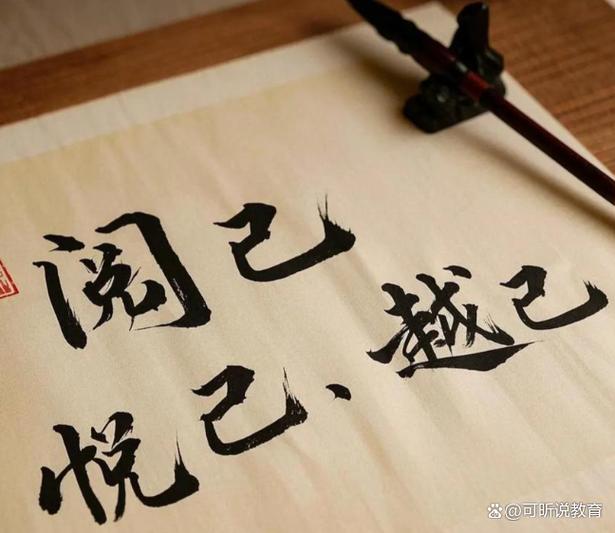 阅己
悦己、越己
@可昕说教育